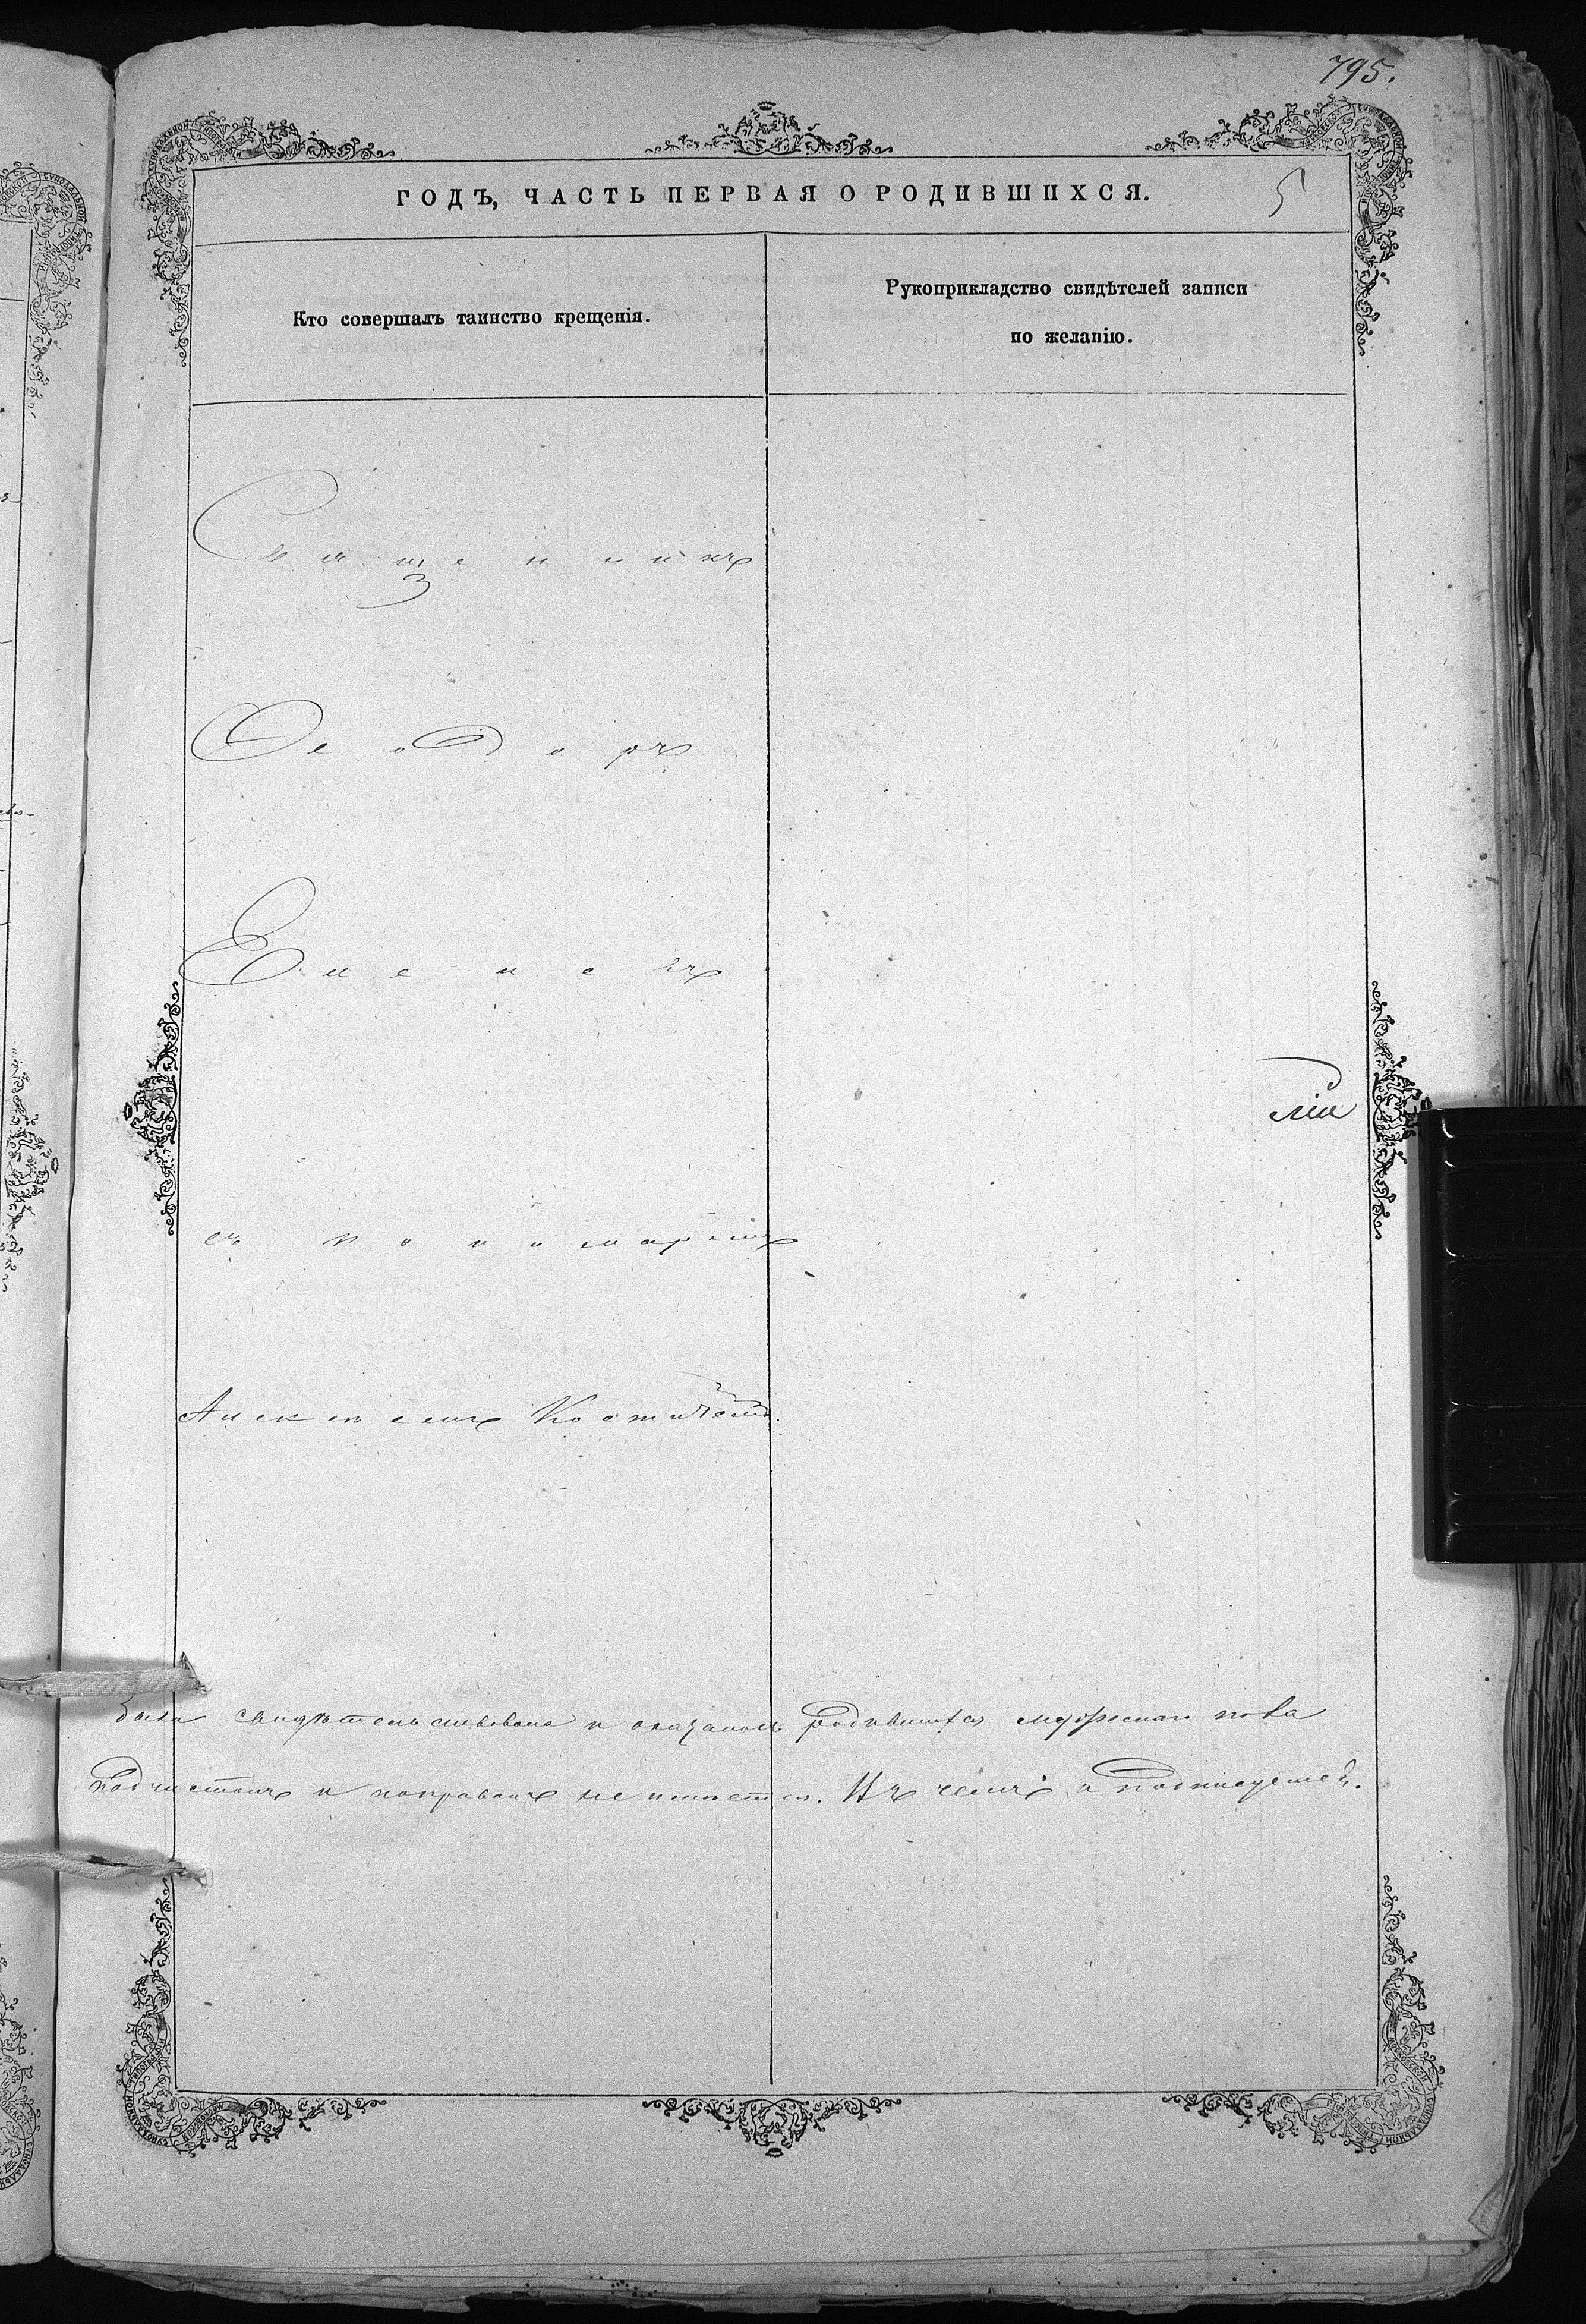 795.
ГОДЪ, ЧАСТЬ ПЕРВАЯ О РОДИВШИХСЯ.
5
Кто совершалъ таинство крещенія.
Рукоприкладство свидѣтелей записи
по желанію.
Священникъ
Ѳеодоръ
съ пономаремъ
была свидѣтельствована и оказалось родившихся мужескаго пола
подчистокъ и поправокъ не имѣется. Въ чемъ и подписуемся.